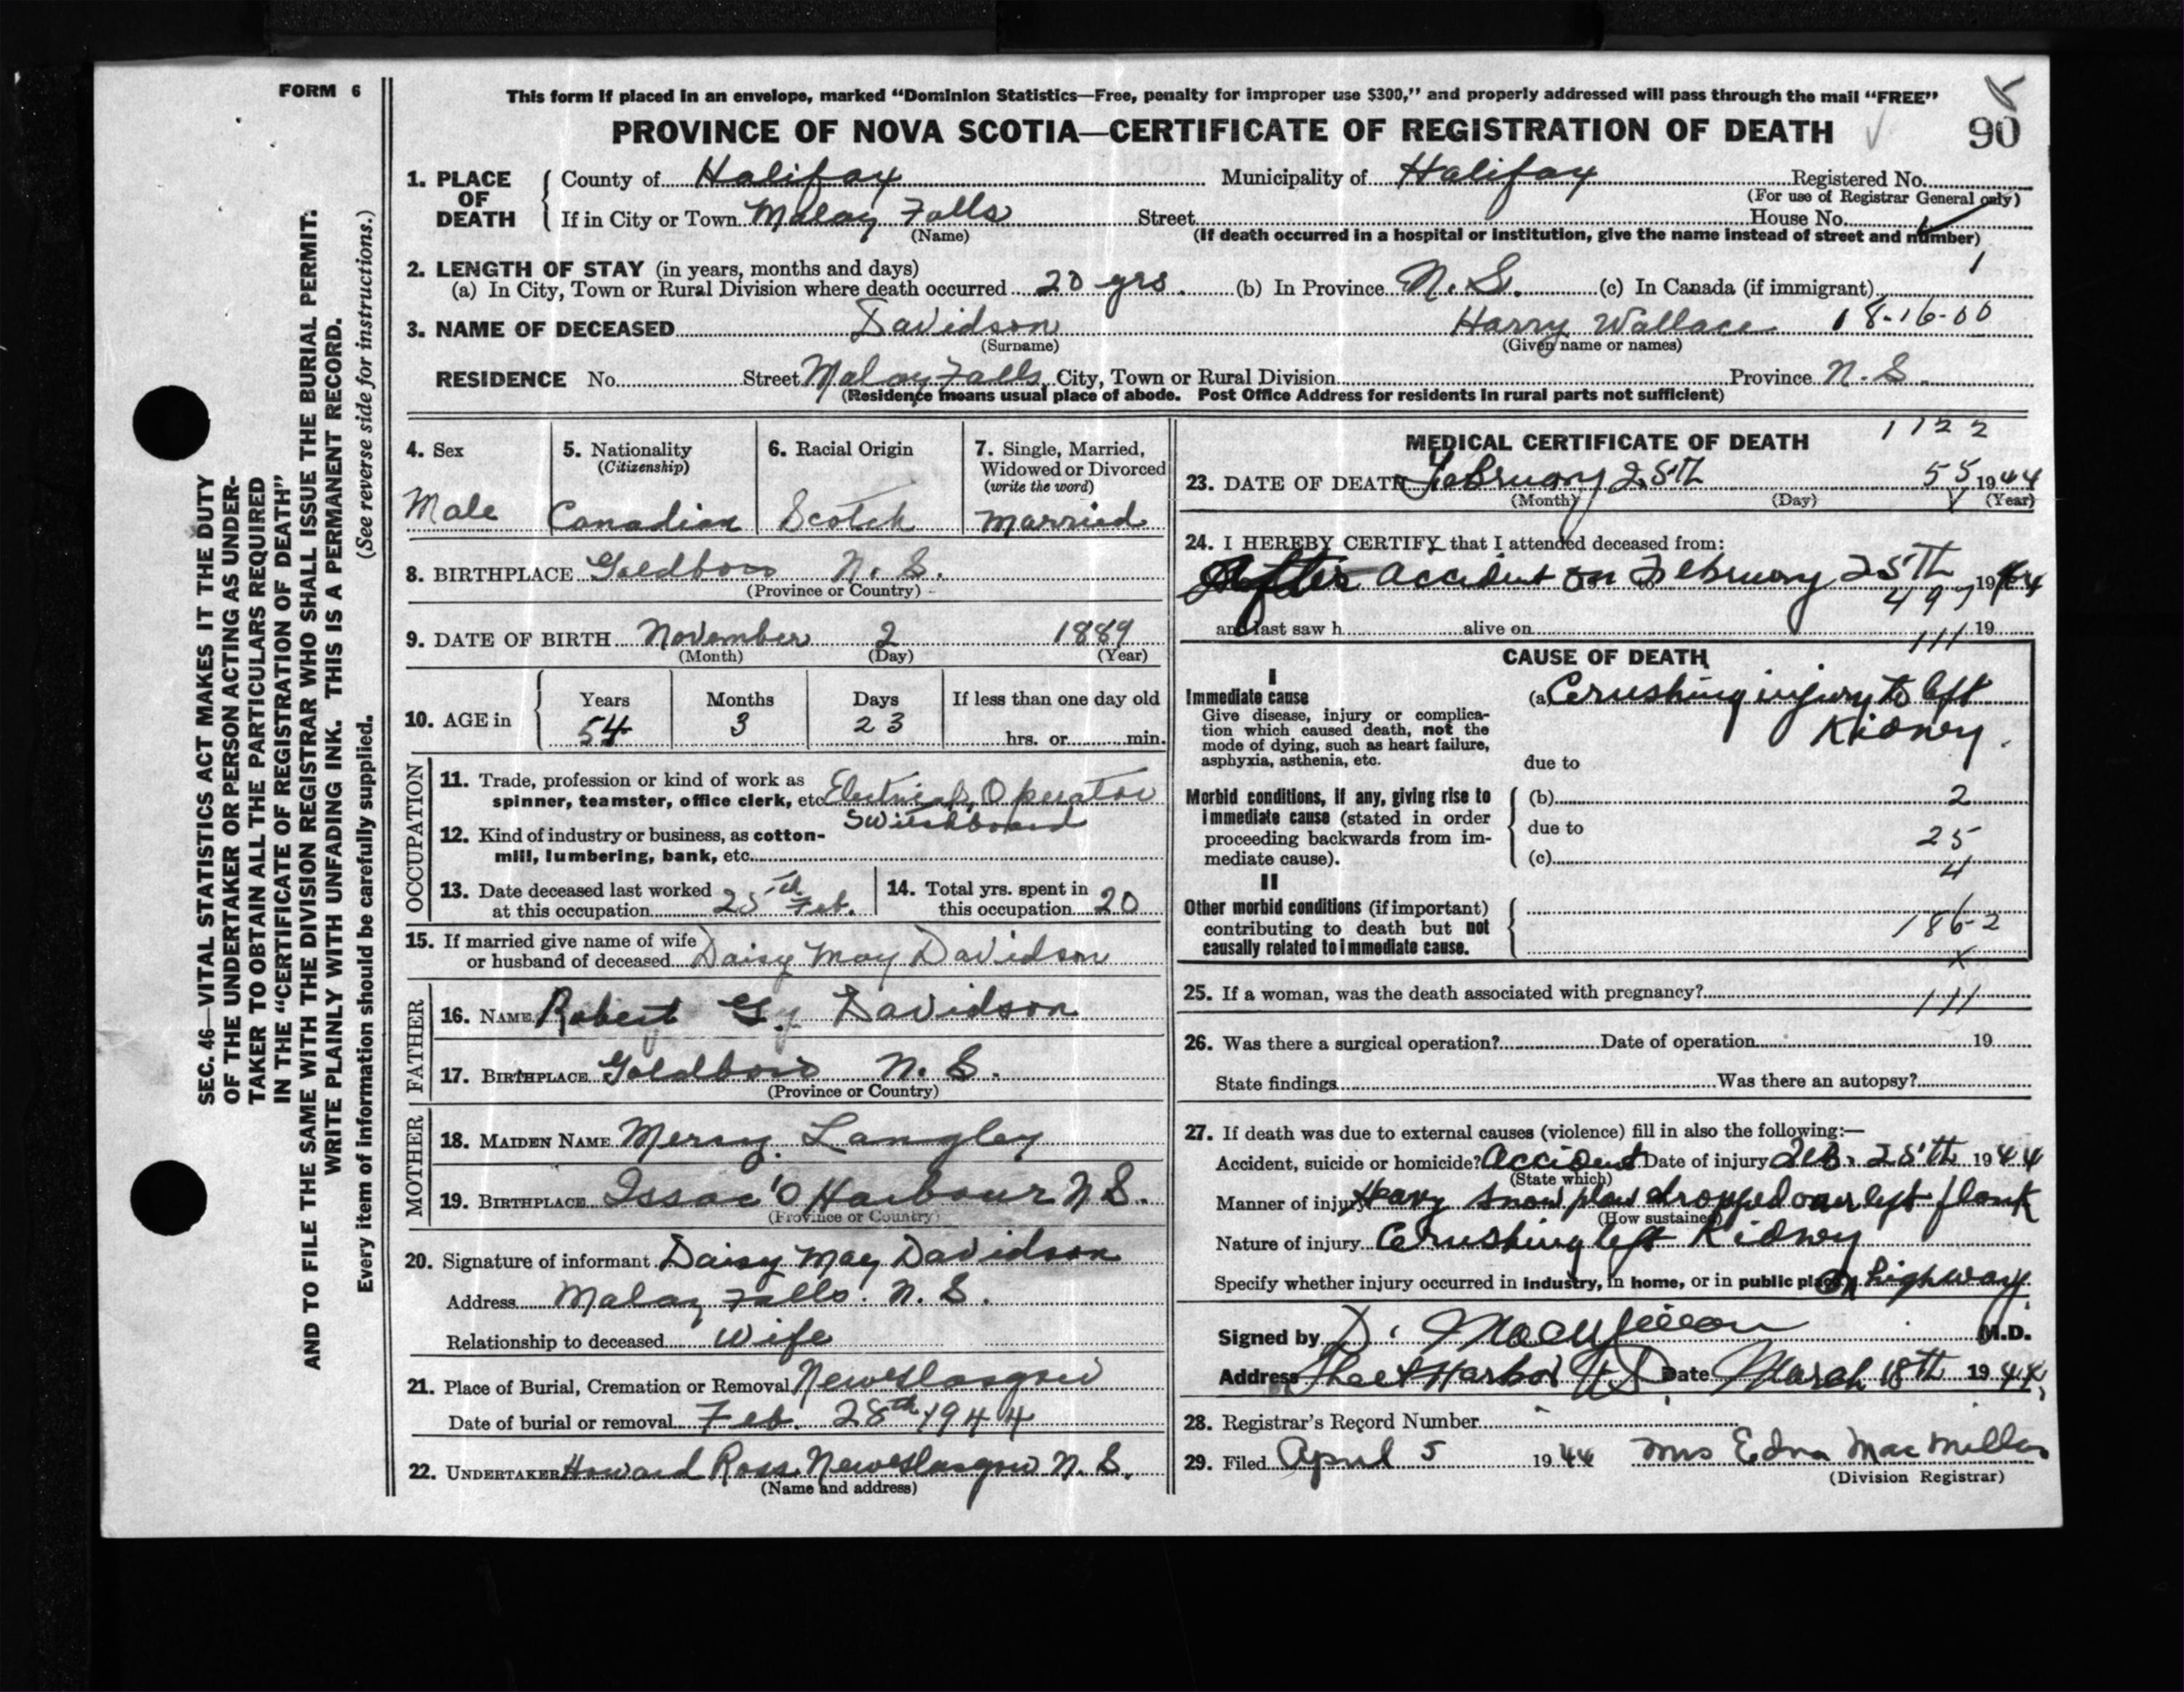 FORM 6
This form if placed in an envelope, marked "Dominion Statistics—Free, penalty for improper use $300," and properly addressed will pass through the mail "FREE"
PROVINCE OF NOVA SCOTIA—CERTIFICATE OF REGISTRATION OF DEATH
90
SEC. 46—VITAL STATISTICS ACT MAKES IT THE DUTY
OF THE UNDERTAKER OR PERSON ACTING AS UNDER-
TAKER TO OBTAIN ALL THE PARTICULARS REQUIRED
IN THE "CERTIFICATE OF REGISTRATION OF DEATH"
AND TO FILE THE SAME WITH THE DIVISION REGISTRAR WHO SHALL ISSUE THE BURIAL PERMIT.
WRITE PLAINLY WITH UNFADING INK. THIS IS A PERMANENT RECORD.
Every item of information should be carefully supplied. (See reverse side for instructions.)
1. PLACE OF DEATH County of Halifax Municipality of Halifax Registered No.
(For use of Registrar General only)
If in City or Town Malay Falls Street House No.
(Name) (If death occurred in a hospital or institution, give the name instead of street and number)
2. LENGTH OF STAY (in years, months and days)
(a) In City, Town or Rural Division where death occurred 20 yrs. (b) In Province N.S. (c) In Canada (if immigrant)
3. NAME OF DECEASED Davidson Harry Wallace 18-16-00
(Surname) (Given name or names)
RESIDENCE No. Street Malay Falls City, Town or Rural Division Province N.S.
(Residence means usual place of abode. Post Office Address for residents in rural parts not sufficient)
4. Sex
Male
5. Nationality
(Citizenship)
Canadian
6. Racial Origin
Scotch
7. Single, Married,
Widowed or Divorced
(write the word)
Married
8. BIRTHPLACE Goldboro N.S.
(Province or Country)
9. DATE OF BIRTH November 2 1889
(Month) (Day) (Year)
10. AGE in
Years Months Days If less than one day old
54 3 23 hrs. or min.
OCCUPATION
11. Trade, profession or kind of work as
spinner, teamster, office clerk, etc. Electrical Operator
Switchboard
12. Kind of industry or business, as cotton-
mill, lumbering, bank, etc.
13. Date deceased last worked
at this occupation 25th Feb.
14. Total yrs. spent in
this occupation 20
15. If married give name of wife
or husband of deceased Daisy May Davidson
FATHER
16. NAME Robert Gy Davidson
17. BIRTHPLACE Goldboro N.S.
(Province or Country)
MOTHER
18. MAIDEN NAME Mersy Langley
19. BIRTHPLACE Issac'O Harbour N.S.
(Province or Country)
20. Signature of informant Daisy May Davidson
Address Malay Falls. N.S.
Relationship to deceased Wife
21. Place of Burial, Cremation or Removal New Glasgow
Date of burial or removal Feb. 28th 1944
22. UNDERTAKER Howard Ross. New Glasgow N.S.
(Name and address)
1122
MEDICAL CERTIFICATE OF DEATH
23. DATE OF DEATH February 25TH 55 1944
(Month) (Day) (Year)
24. I HEREBY CERTIFY that I attended deceased from:
After accident on February 25TH 1944
497
and last saw h alive on 19
111
CAUSE OF DEATH
I
Immediate cause
Give disease, injury or complica-
tion which caused death, not the
mode of dying, such as heart failure,
asphyxia, asthenia, etc.
(a) Cerushing injury to left
Kidney.
due to
Morbid conditions, if any, giving rise to
immediate cause (stated in order
proceeding backwards from im-
mediate cause).
(b) 2
due to
25
(c) 4
II
Other morbid conditions (if important)
contributing to death but not
causally related to immediate cause.
186-2
x
25. If a woman, was the death associated with pregnancy?
111
26. Was there a surgical operation? Date of operation 19
State findings Was there an autopsy?
27. If death was due to external causes (violence) fill in also the following:—
Accident, suicide or homicide? Accident Date of injury Feb. 25th 1944
(State which)
Manner of injury Heavy snow plow dropped over left flank
(How sustained)
Nature of injury Cerushing left Kidney
Specify whether injury occurred in industry, in home, or in public place On highway.
Signed by D. M.D.
Address Sheet Harbor NS Date March 18th 1944
28. Registrar's Record Number
29. Filed April 5 1944 Mrs Edna MacMillan
(Division Registrar)